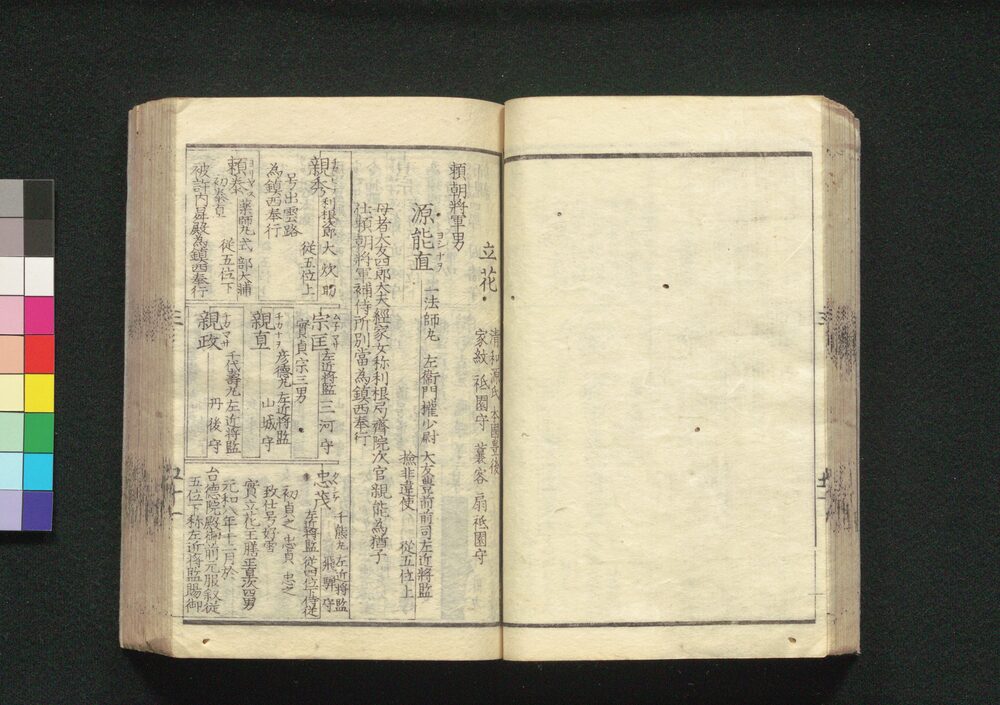 立花
清和源氏 本國豊後
家紋 祗園守 蘘荷 扇祗園守
頼朝將軍男
源能直
ヨシナヲ
一法師丸 左衛門權少尉 大友豊前前司左近將監
檢非違使 從五位上
母者大友四郎大夫經家女称利根弓齋院次官親能為猶子
仕頼朝將軍補侍所別當為鎮西奉行
親秀
利根次郎 大炊助
從五位上
号出雲路
為鎮西奉行
頼泰
ヨリヤス
薬師丸 式部大輔
初泰直 從五位下
被許内昇殿為鎮西奉行
宗匡
左近將監 三河守
實貞宗三男
親直
チカナヲ
彦德丸 左近將監
山城守
親政
チカマサ
千代壽丸 左近將監
丹後守
忠茂
タヽシケ
千熊丸 左近將監 飛騨守
左近將監 從四位下侍従
初貞之 忠貫 忠之
致仕号好雪
實立花主膳正直次四男
元和八年十二月於
台德院殿御前元服叙從
五位下称左近將監賜御